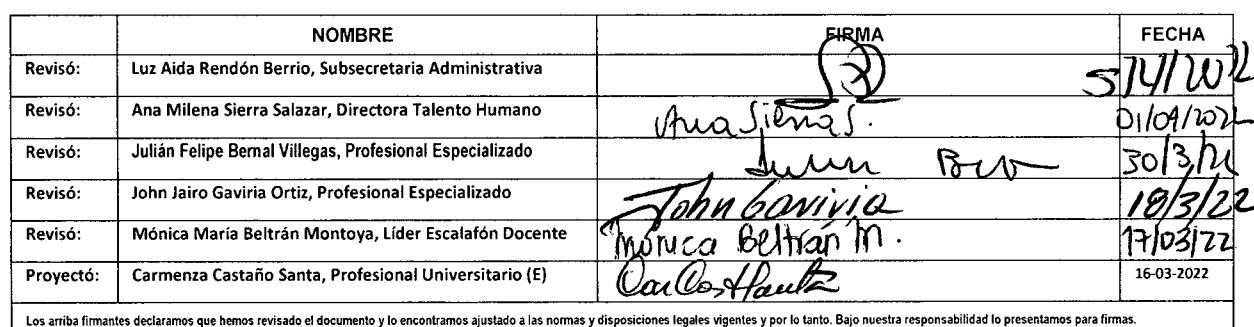 NOMBRE FIRMA FECHA
Revisó: Luz Aida Rendón Berrio, Subsecretaria Administrativa 5/4/2022
Revisó: Ana Milena Sierra Salazar, Directora Talento Humano Ana Sierra S. 01/04/2022
Revisó: Julián Felipe Bernal Villegas, Profesional Especializado 30/3/22
Revisó: John Jairo Gaviria Ortiz, Profesional Especializado John Gaviria 18/3/22
Revisó: Mónica María Beltrán Montoya, Líder Escalafón Docente Mónica Beltrán M. 17/03/22
Proyectó: Carmenza Castaño Santa, Profesional Universitario (E) 16-03-2022
Los arriba firmantes declaramos que hemos revisado el documento y lo encontramos ajustado a las normas y disposiciones legales vigentes y por lo tanto. Bajo nuestra responsabilidad lo presentamos para firmas.